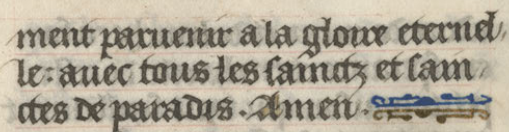 ment paruenir a la gloire eternel/
le: auec tous les sainctz et sain/
ctes de paradis. Amen.